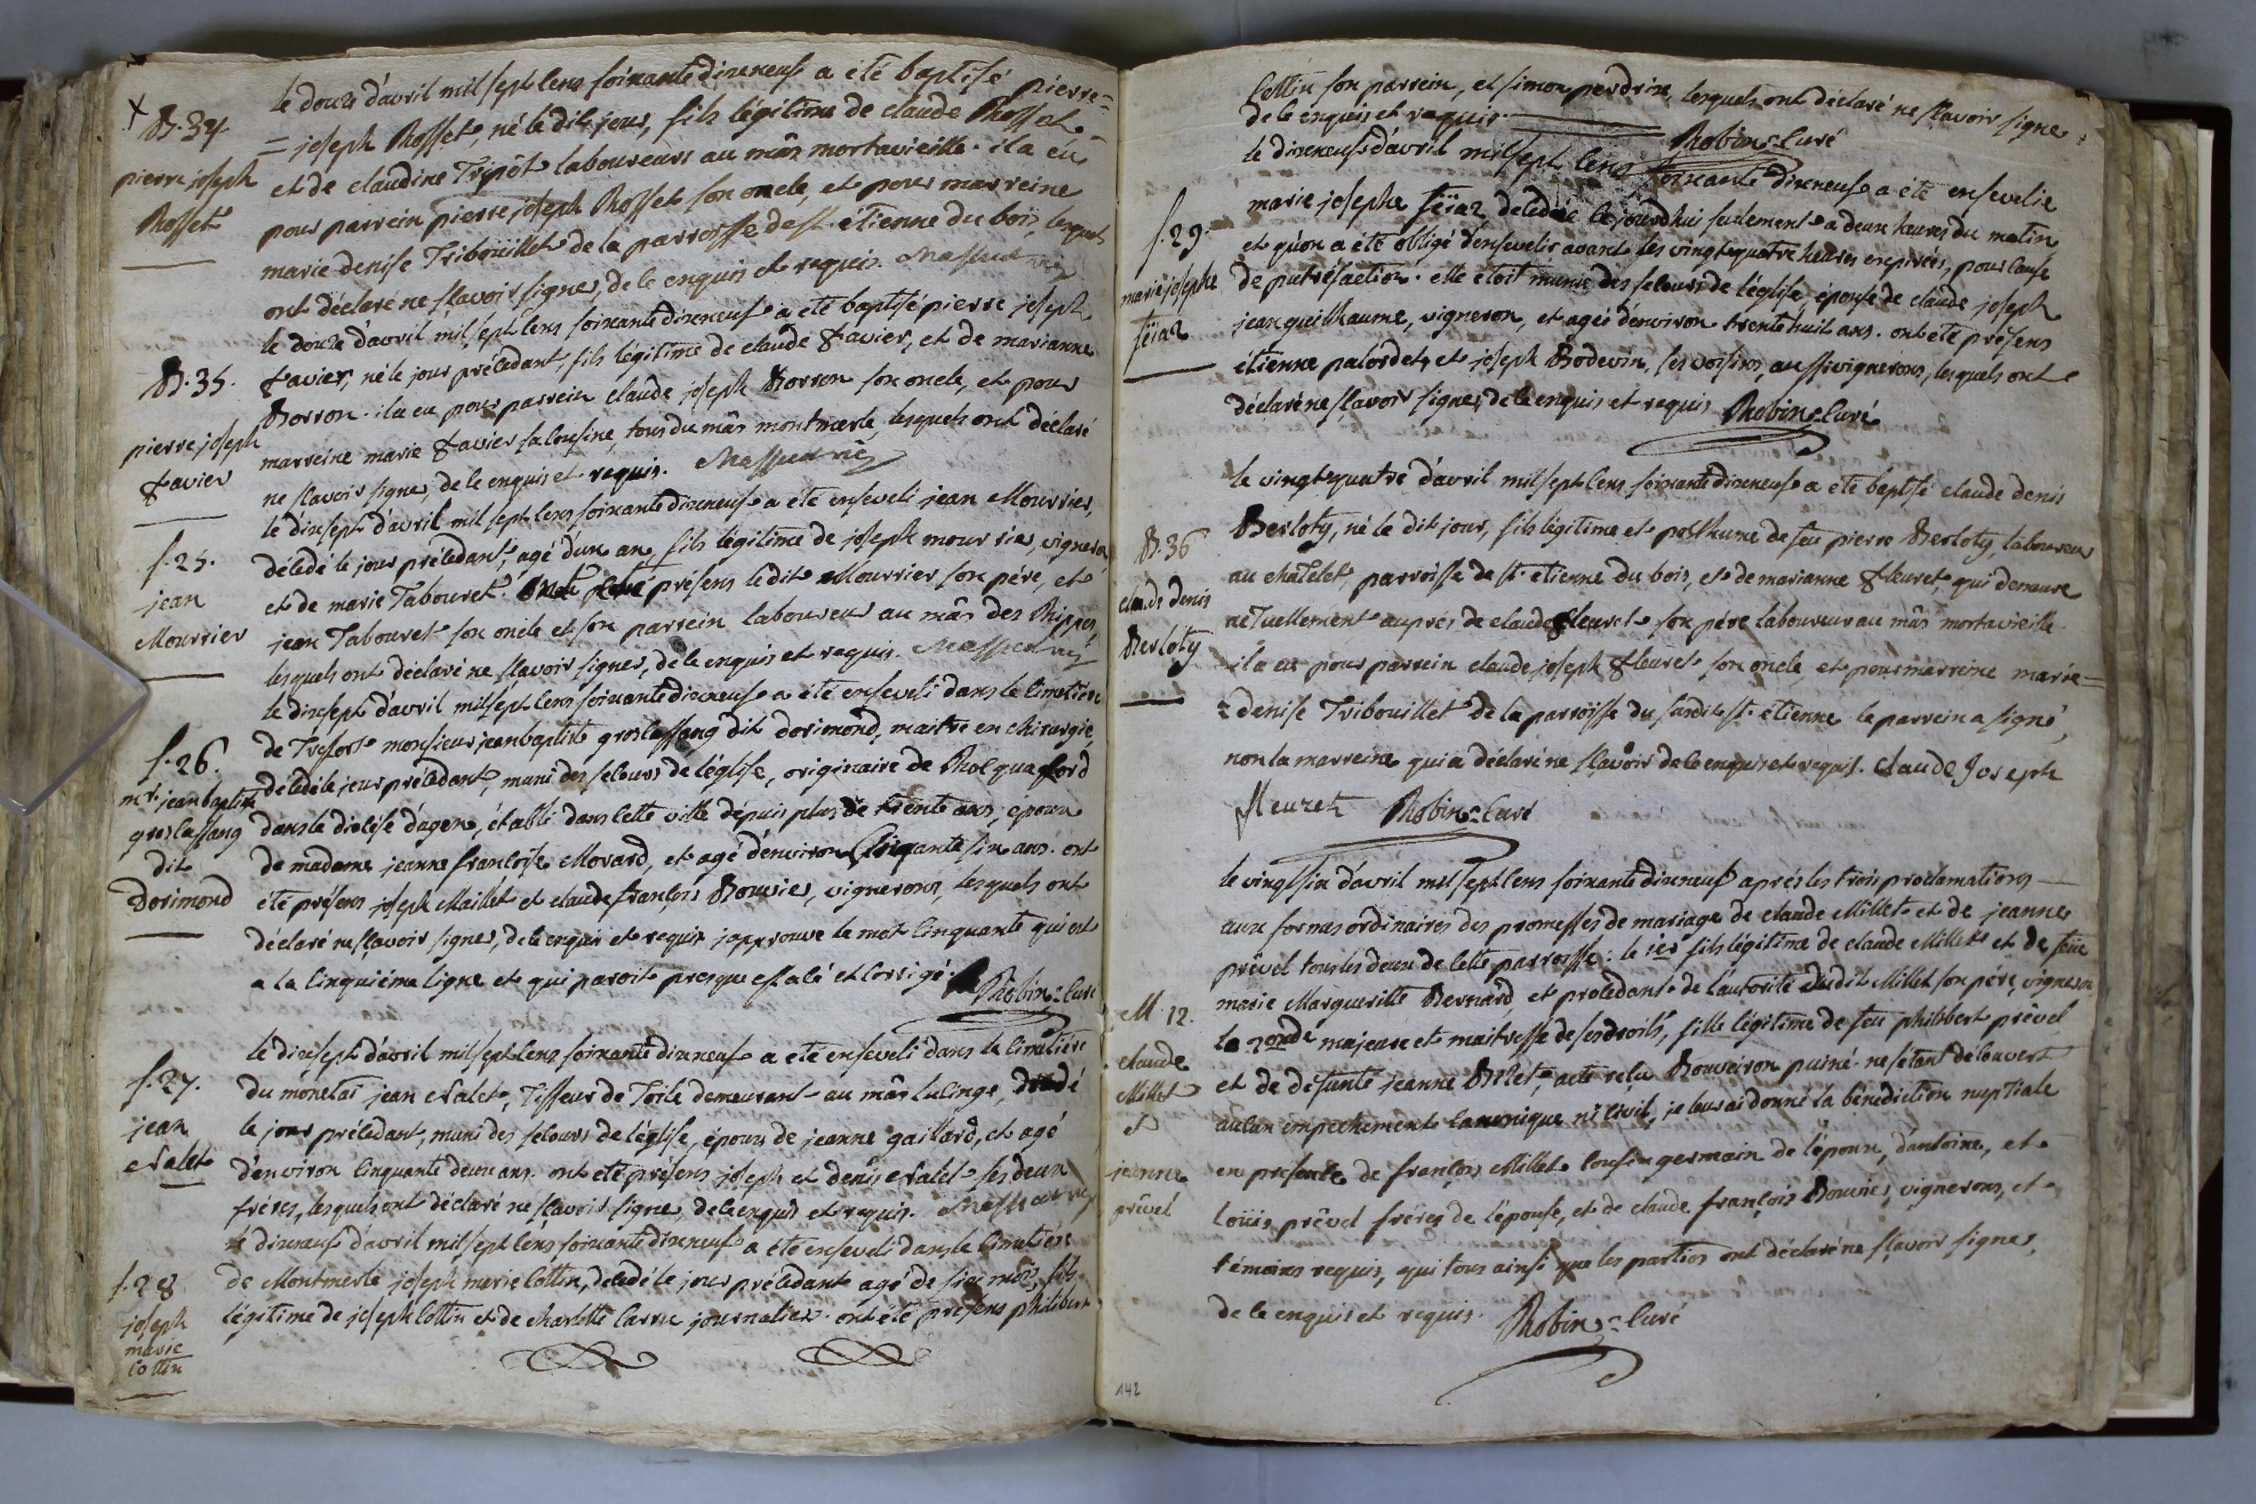 B. 34.
pierre joseph
Rosset
le douze d'avril mil sept cens soixante dixneuf a été baptisé pierre=
= joseph Rosset, né le dit jour, fils légitime de claude Rosset
et de claudine Tripôt laboureurs au mâs mortavieille. il a eu
pour parrein pierre joseph Rosset son oncle, et pour marreine
marie denise Tribouillet de la parroisse de st. étienne du bois, lesquels
ont déclaré ne sçavoir signer, de ce enquis et requis.
B. 35.
pierre joseph
favier
le douze d'avril mil sept cens soixante dixneuf a été baptisé pierre joseph
favier, né le jour précédant, fils légitime de claude favier, et de marianne
Borron. il a eu pour parrein claude joseph Borron son oncle, et pour
marreine marie favier sa cousine, tous du mâs montmerle, lesquels ont déclaré
ne sçavoir signer, de ce enquis et requis.
f. 25.
jean
Mourrier
le dixsept d'avril mil sept cens soixante dixneuf a été enseveli jean Mourrier,
décédé le jour précédant, agé d'un an, fils légitime de joseph mourrier, vigneron
et de marie Tabouret. ont été présens le dit Mourrier son père, et
jean Tabouret son oncle et son parrein laboureur au mâs des Rippes,
lesquels ont déclaré ne sçavoir signer, de ce enquis et requis.
f. 26.
mr. jean baptiste
groslassang
dit
Dorimond
le dixsept d'avril mil sept cens soixante dixneuf a été enseveli dans le cimetière
de Treffort monsieur jean baptiste groslassang dit dorimond, maitre en chirurgie,
décédé le jour précédant, muni des secours de l'église, originaire de Rocquafford
dans le diocèse d'agen, établi dans cette ville depuis plus de trente ans, époux
de madame jeanne françoise Morard, et agé d'environ cinquante six ans. ont
été présens joseph Maillet et claude françois Bouvier, vignerons, lesquels ont
déclaré ne sçavoir signer, de ce enquis et requis j'approuve le mot cinquante qui est
a la cinquiéme ligne et qui paroit presque effacé et corrigé. Robin=curé
f. 27.
jean
Nalet
le dixsept d'avril mil sept cens soixante dixneuf a été enseveli dans le cimetière
du monetai jean Nalet, Tisseur de Toile demeurant au mâs lucinge, décédé
le jour précédant, muni des secours de l'église, époux de jeanne gaillard, et agé
d'environ cinquante deux ans. ont été présens joseph et denis Nalet ses deux
frères, lesquels ont déclaré ne sçavoir signer, de ce enquis et requis.
f. 28
joseph
marie
Cottin
le dixneuf d'avril mil sept cens soixante dixneuf a été enseveli dans le cimetière
de Montmerle joseph marie Cottin, décédé le jour précédant agé de six mois, fils
légitime de joseph Cottin et de charlotte Carru journalier. ont été présens philibert
Cottin son parrein, et simon perdrix, lesquels ont déclaré ne sçavoir signer
de ce enquis et requis. Robin=curé
f. 29.
marie josephe
féïaz
le dixneuf d'avril mil sept cens soixante dixneuf a été ensevelie
marie josephe féïaz décédée ce jourd'hui seulement a deux heures du matin
et qu'on a été obligé d'ensevelir avant les vingt quatre heures expirées, pour cause
de putréfaction. elle étoit munie des secours de l'église, épouse de claude joseph
jean guillhaume, vigneron, et agée d'environ trente huit ans. ont été présens
étienne palordet, et joseph Bodevin, ses voisins, aussi vignerons, lesquels ont
déclaré ne sçavoir signer, de ce enquis et requis Robin=curé
B. 36
claude denis
Berloty
le vingt quatre d'avril mil sept cens soixante dixneuf a été baptisé claude denis
Berloty, né le dit jour, fils légitime et posthume de feu pierre Berloty, laboureur
au chatelet, parroisse de st. étienne du bois, et de marianne fleuret, qui demeure
actuellement auprès de claude fleuret son père laboureur au mâs mortavieille.
il a eu pour parrein claude joseph fleuret son oncle et pour marreine marie=
= denise Tribouillet de la parroisse du susdit st. étienne. le parrein a signé,
non la marreine qui a déclaré ne sçavoir de ce enquis et requis. claude joseph
fleuret Robin=curé
M. 12.
claude
Millet
et
jeanne
prêvel
le vingt six d'avril mil sept cens soixante dixneuf après les trois proclamations
aux formes ordinaires des promesses de mariage de claude Millet et de jeanne
prêvel tous les deux de cette parroisse: le 1er fils légitime de claude Millet et de feüe
marie Marguerite Bernard, et procédant de l'autorité du dit Millet son père, vigneron
la 2onde majeure et maitresse de ses droits, fille légitime de feu philibert prêvel
et de défunte jeanne Billet, acte reçu Bouveiron puiné. ne s'étant découvert
aucun empechement canonique ni civil, je leur ai donné la bénédiction nuptiale
en présence de françois Millet cousin germain de l'époux, d'antoine, et
Loüis prêvel frères de l'épouse, et de claude françois Bouvier, vignerons, et
témoins requis, qui tous ainsi que les parties ont déclaré ne sçavoir signer,
de ce enquis et requis. Robin=curé
142